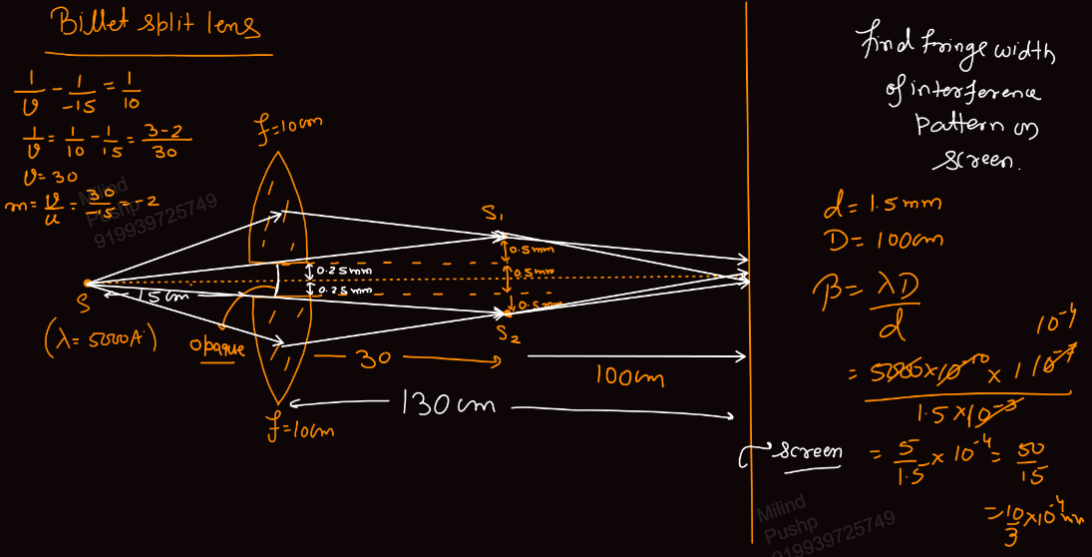 Billet split lens
1/v - 1/-15 = 1/10
1/v = 1/10 - 1/15 = 3-2/30
v = 30
m = v/u = 30/-15 = -2
Milind
Pushp
919939725749
f=10cm
S₁
0.5mm
0.25mm
0.5mm
0.25mm
0.5mm
S
15cm
S₂
(λ = 5000A°)
opaque
30
100cm
130cm
f=10cm
screen
find fringe width
of interference
pattern on
screen.
d = 1.5mm
D = 100cm
β = λD/d
10⁻⁴
= 5000×10⁻¹⁰ × 1 10⁻⁷
1.5×10⁻³
= 5/1.5 × 10⁻⁴ = 50/15
= 10/3 ×10⁻⁴ m
Milind
Pushp
919939725749